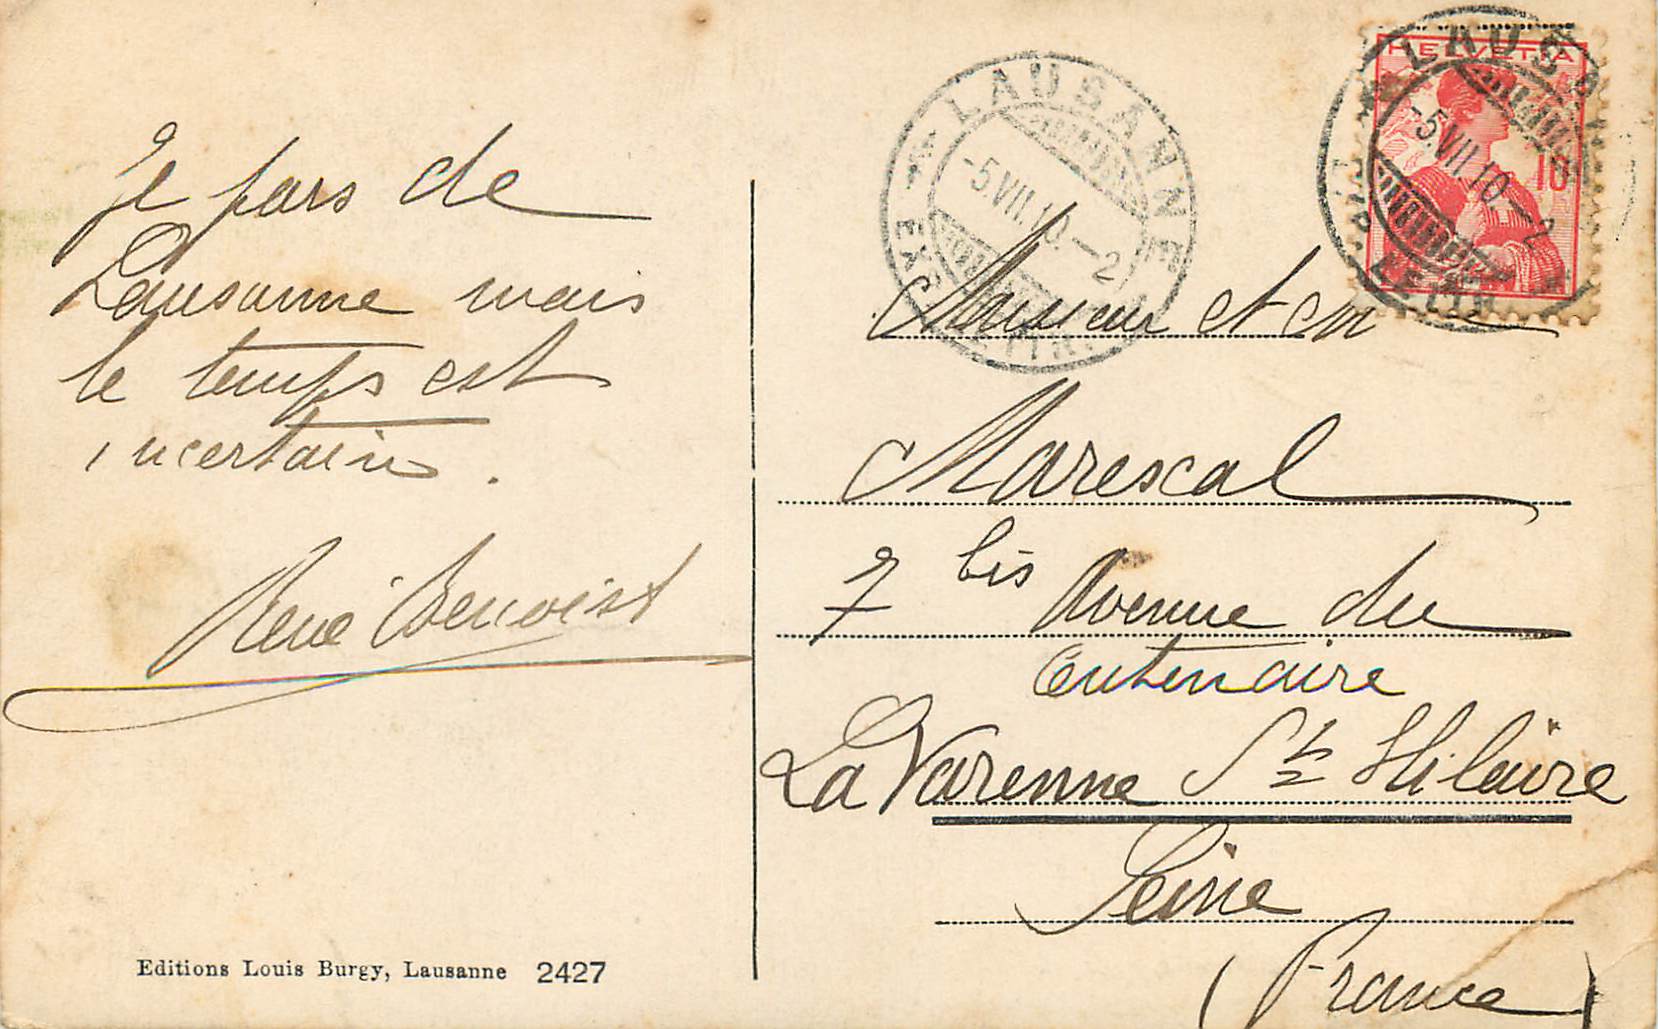 Je pars de
Lausanne mais
le temps est
incertain.
René Benoist
Editions Louis Burgy, Lausanne 2427
LAUSANNE
-5.VII.10.—2
EXP. LETTR.
HELVETIA
10
LAUSANNE
-5.VII.10.—2
EXP. LETTR.
Monsieur et
Marescal
7 bis Avenue du
Centenaire
La Varenne St Hilaire
Seine
(France)